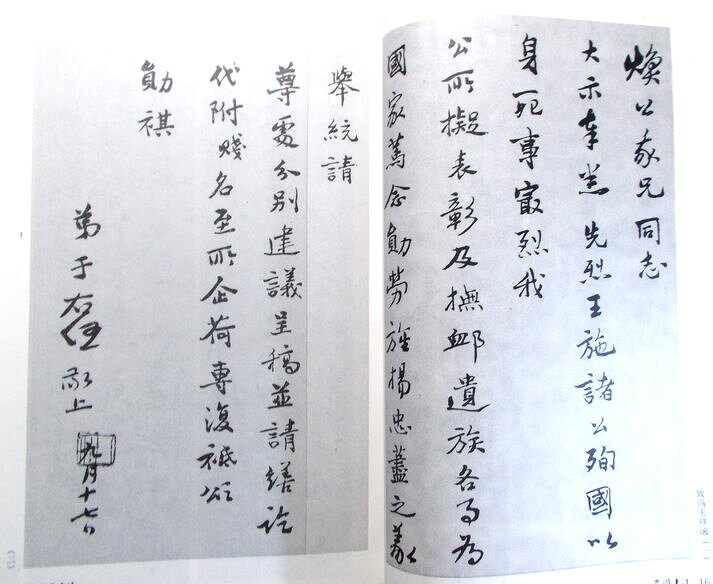 煥公家兄同志
大示奉悉先烈王施諸公殉國以
身死事最烈我
公所擬表彰及撫卹遺族各節為
國家篤念勛勞旌揚忠藎之義
舉統請
尊處分別建議呈稿並請繕訖
代附賤名至所企荷專復祗頌
勛祺
弟于右任敬上 九月十七日
致冯玉祥函(一)